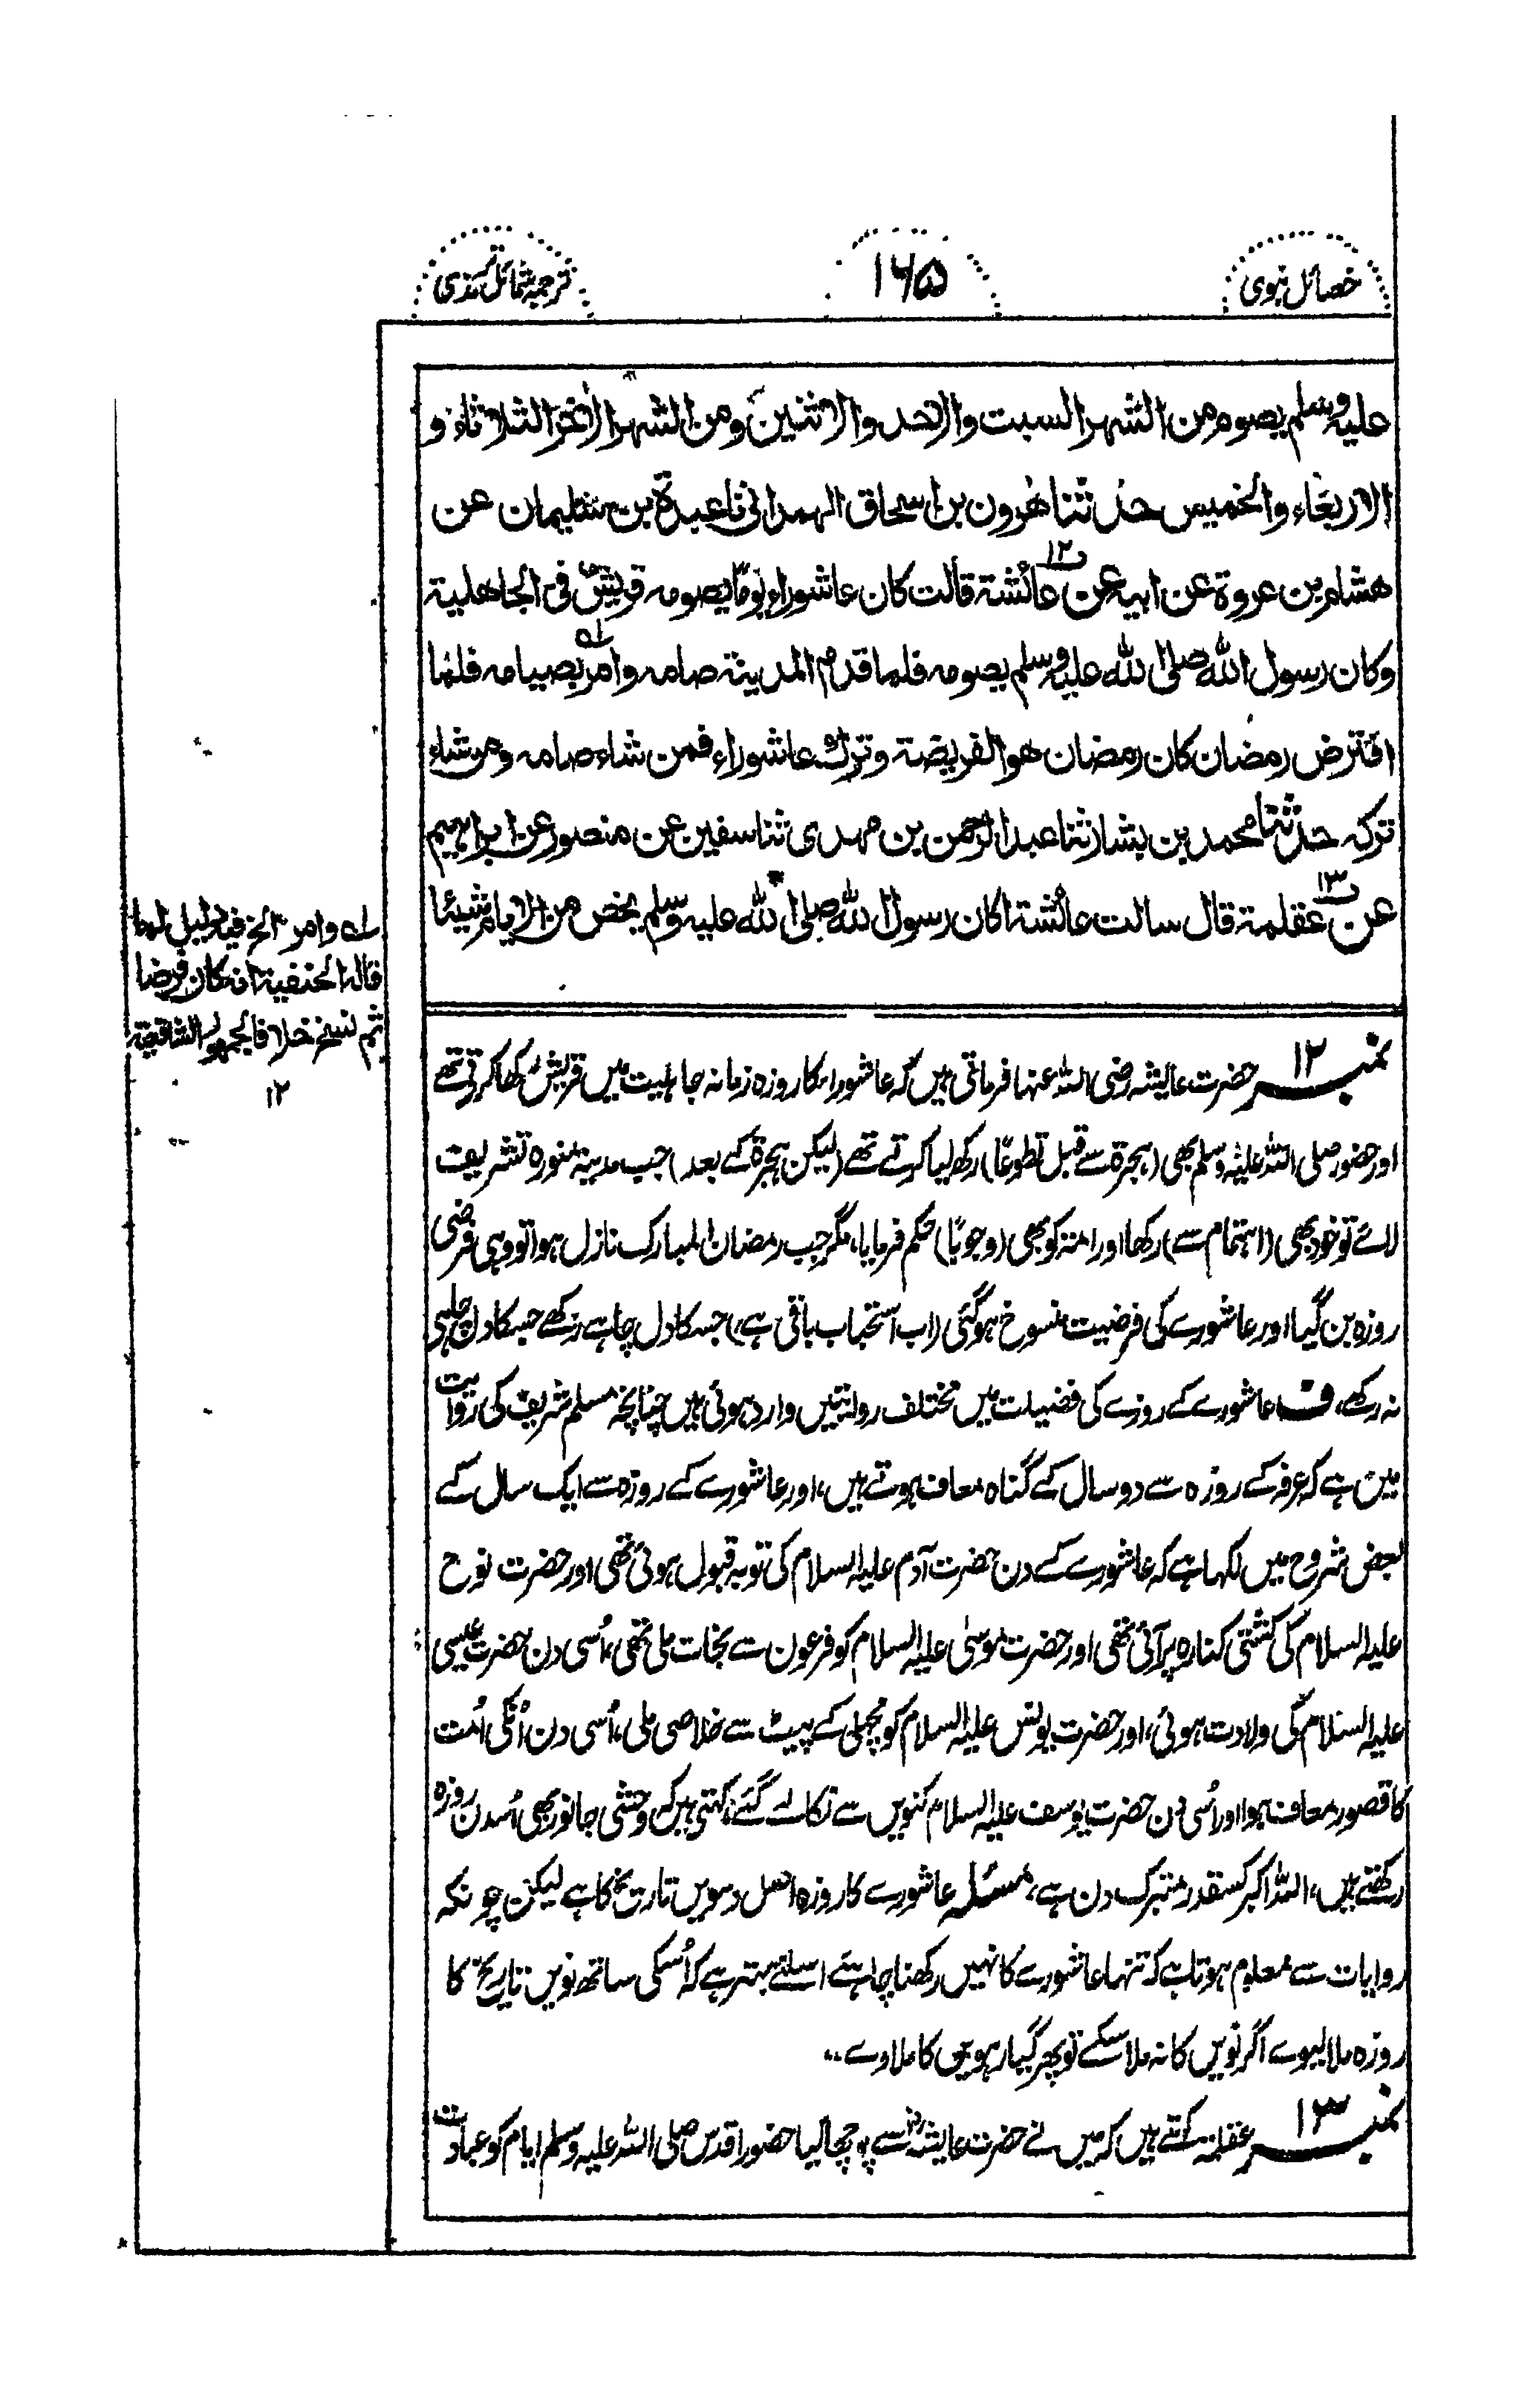 خصائل نبوی
۱۶۵
ترجمہ شمائل ترمذی
علیہ وسلم یصوم من الشہر السبت والاحد والاثنین ومن الشہر الاخر الثلاثاء و
الاربعاء والخمیس حدثنا ہٰرون بن اسحاق الہمدانی نا عبدة بن سلیمان عن
ھشام بن عروة عن ابیہ عن عائشة قالت کان عاشوراء یوماً یصومہ قریش فی الجاھلیة
وکان رسول اللہ صلی اللہ علیہ وسلم یصومہ فلما قدم المدینة صامہ وامر بصیامہ فلما
افترض رمضان کان رمضان ھو الفریضة وترک عاشوراء فمن شاء صامہ ومن شاء
ترکہ حدثنا محمد بن بشار ثنا عبدالرحمن بن مہدی ثنا سفین عن منصور عن ابراہیم
عن عقلمة قال سالت عائشة اکان رسول اللہ صلی اللہ علیہ وسلم یخص من الایام شیئا
لہ وامر الخ فیہ دلیل لما
قالہ الحنفیة انہ کان فرضا
ثم نسخ خلافا لجمہور الشافعیة
۱۲
نمبر ۱۲ حضرت عایشہ رضی اللہ عنہا فرماتی ہیں کہ عاشورا کا روزہ زمانہ جاہلیت میں قریش رکھا کرتے تھے
اور حضور صلی اللہ علیہ وسلم بھی (ہجرة سے قبل تطوعًا) رکھ لیا کرتے تھے (لیکن ہجرة کے بعد) جب مدینہ منورہ تشریف
لائے تو خود بھی (اہتمام سے) رکھا اور امت کو بھی (وجوبًا) حکم فرمایا، مگر جب رمضان المبارک نازل ہوا تو وہی فرضی
روزہ بن گیا اور عاشورے کی فرضیت منسوخ ہوگئی (اب استحباب باقی ہے) جسکا دل چاہے رکھے جسکا دل چاہے
نہ رکھے، ف عاشورے کے روزے کی فضیلت میں مختلف روایتیں وارد ہوئی ہیں چنانچہ مسلم شریف کی روایت
میں ہے کہ عرفہ کے روزہ سے دو سال کے گناہ معاف ہوتے ہیں، اور عاشورے کے روزہ سے ایک سال کے
بعض شروح میں لکہا ہے کہ عاشورے کے دن حضرت آدم علیہ السلام کی توبہ قبول ہوئی تھی اور حضرت نوح
علیہ السلام کی کشتی کنارہ پر آئی تھی اور حضرت موسیٰ علیہ السلام کو فرعون سے نجات ملی تھی، اُسی دن حضرت عیسی
علیہ السلام کی ولادت ہوئی، اور حضرت یونس علیہ السلام کو مچھلی کے پیٹ سے خلاصی ملی، اُسی دن اُنکی اُمت
کا قصور معاف ہوا اور اُسی دن حضرت یوسف علیہ السلام کنویں سے نکالے گئے، کہتے ہیں کہ وحشی جانور بھی اُسدن روزہ
رکھتے ہیں، اللہ اکبر کسقدر متبرک دن ہے، مسئلہ عاشورے کا روزہ اصل دسویں تاریخ کا ہے لیکن چونکہ
روایات سے معلوم ہوتا ہے کہ تنہا عاشورے کا نہیں رکھنا چاہئے اسلئے بہتر ہے کہ اُسکی ساتھ نویں تاریخ کا
روزہ ملا لیوے اگر نویں کا نہ ملا سکے تو پھر گیارہویں کا ملا وے
نمبر ۱۳ عقلمہ کہتے ہیں کہ میں نے حضرت عایشہ سے پوچھا کیا حضور اقدس صلی اللہ علیہ وسلم ایام کو عبادت